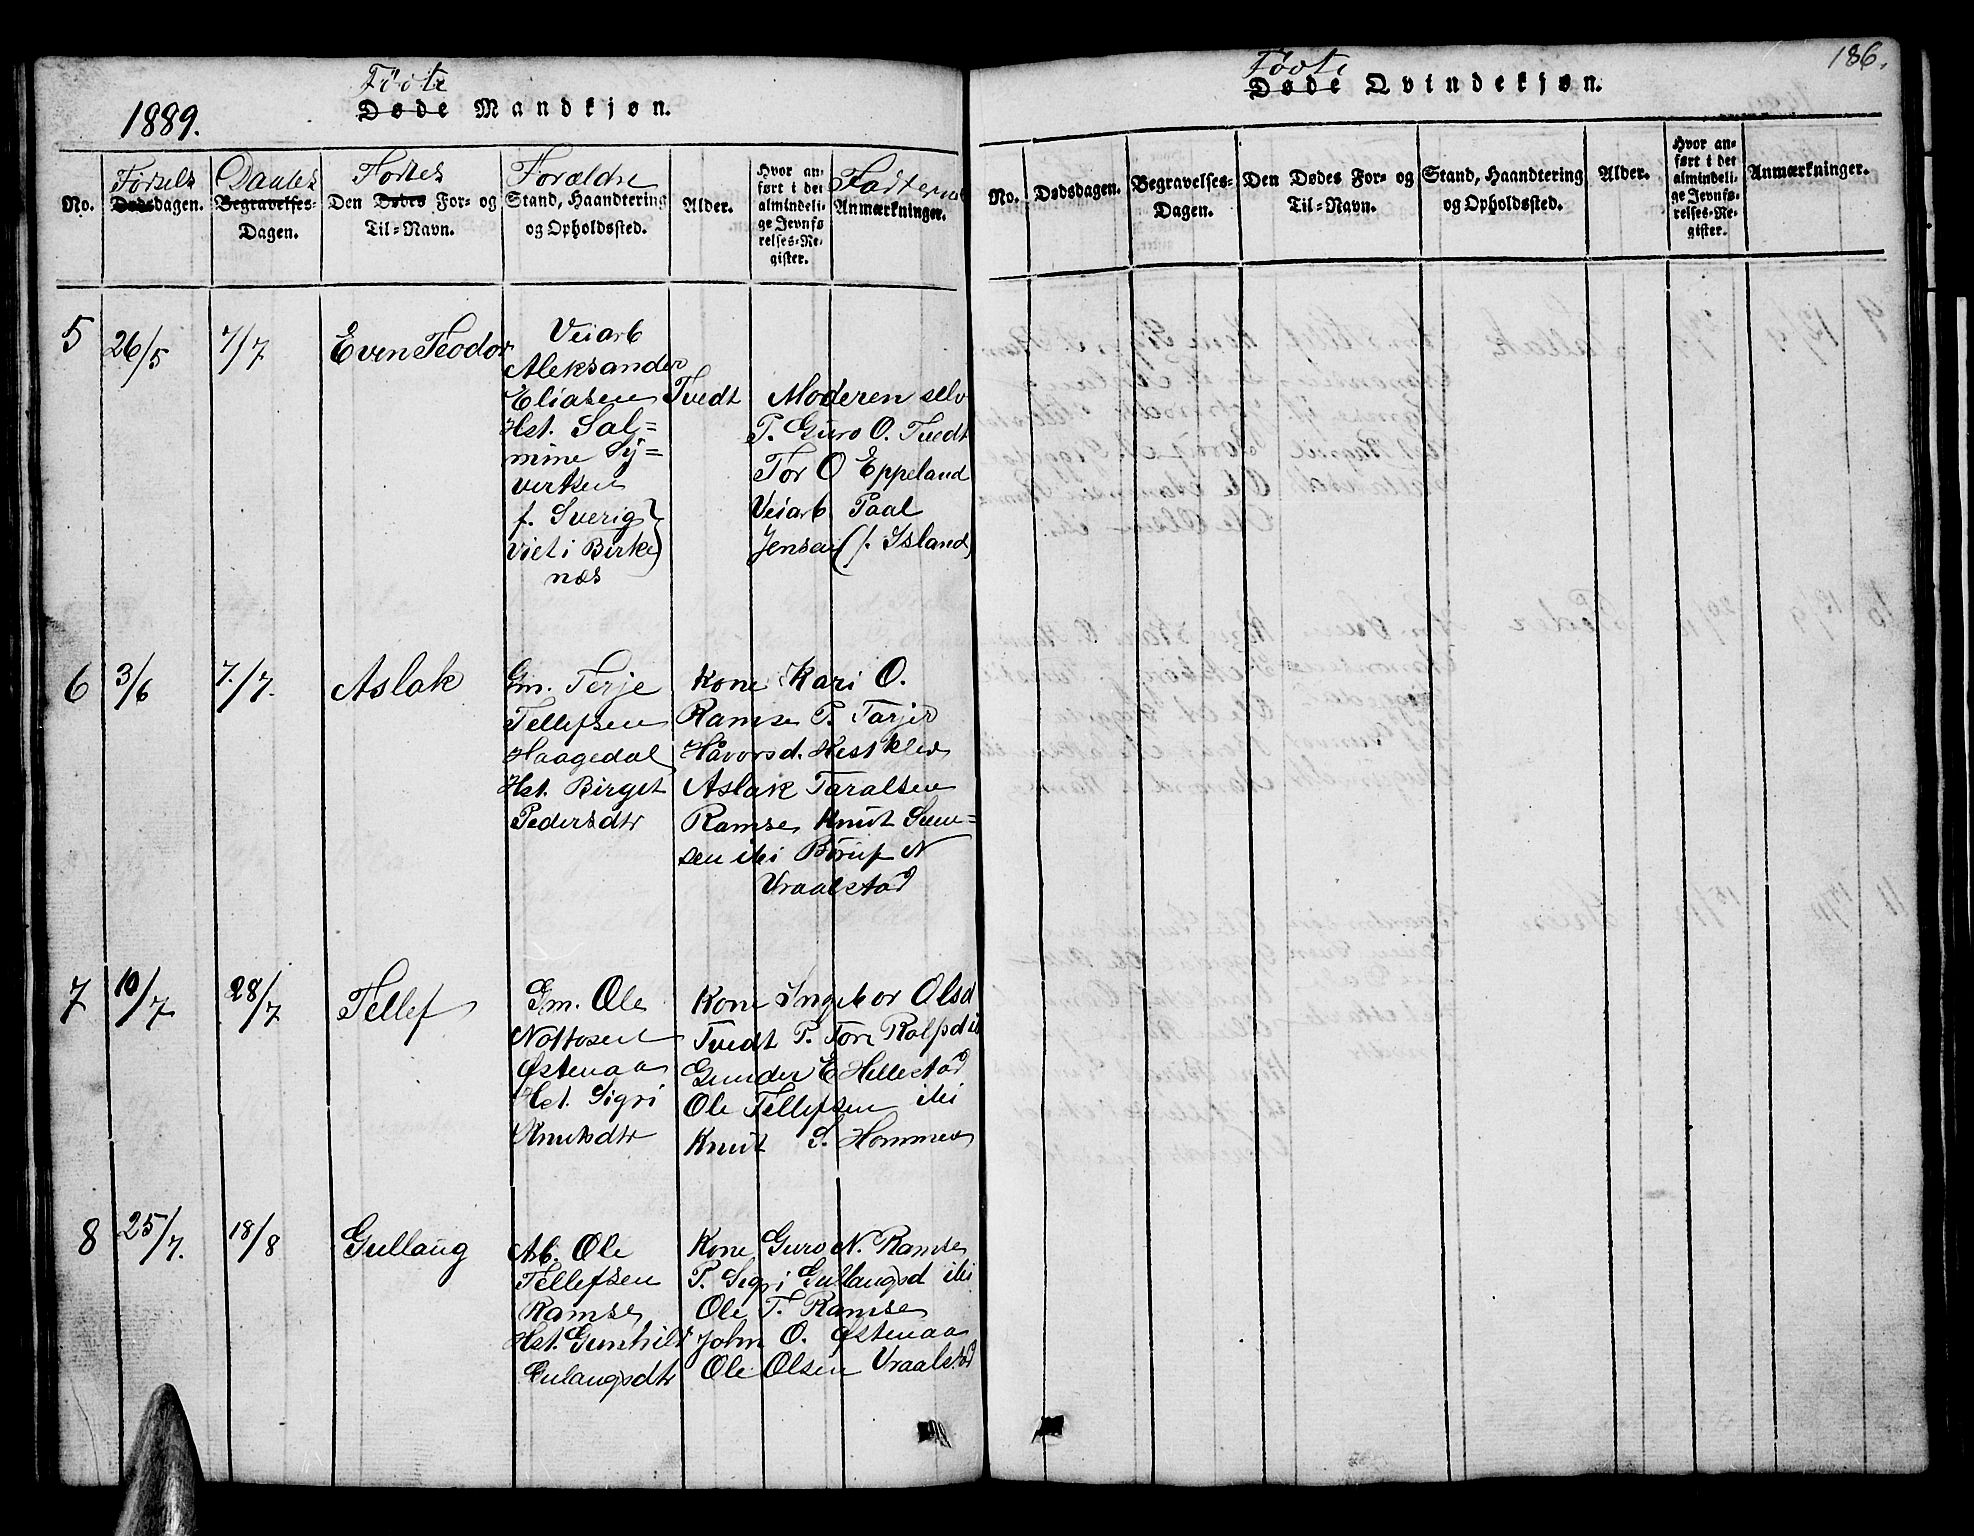 1889.
Födte
Døde Mandkjøn.
No.
Fødsels
Dødsdagen.
Daabs
Begravelses-
Dagen.
Fødtes
Den Dødes For- og
Til-Navn.
Forældre
Stand, Haandtering
og Opholdssted.
Alder.
Hvor an-
ført i det
almindeli-
ge Jevnfø
relses-Re-
gister.
Fadderne
Anmærkninger.
5
26/5
7/7
Even Teodor
Veiarb
Aleksander
Eliasen Tvedt
Hst. Sal=
mine Sy=
vertsen
f. Sverig
viet i Birke
næs
Moderen selv
P. Guro O. Tvedt
Tor O Eppeland
Veiarb Paal
Jensen (f. Island)
6
3/6
7./7.
Aslak
Gm. Terje
Tellefsen
Haagedal
Hst. Birget
Pedersdtr
Kone Kari O.
Ramse P. Tarjer
Håvorsd. Hestklev
Aslak Taralsen
Ramse Knut
sen ibi N
Vraalstad
7
10/7
28/7
Tellef
Gm. Ole
Nottosen
Østenaa
Hst. Sigri
Knutsdtr
Kone Ingebor Olsd
Tvedt P. Tore Rolfsd ibi
Gunder E Hellestad
Ole Tellefsen ibi
Knut S. Hommen
8
25/7.
18/8
Gullaug
Arb. Ole
Tellefsen
Ramse
Hst. Gunhild
Gulaugsdtr
Kone Guro N. Ramse
P. Sigri Gullaugsd ibi
Ole T. Ramse
John O. Østenaa
Ole Olsen Vraalstad
186.
Fødte
Døde Qvindekjøn.
No.
Dødsdagen.
Begravelses-
Dagen.
Den Dødes For- og
Til-Navn.
Stand, Haandtering
og Opholdssted.
Alder.
Hvor an-
ført i det
almindeli-
ge Jevnfø-
relses-Re-
gister.
Anmærkninger.